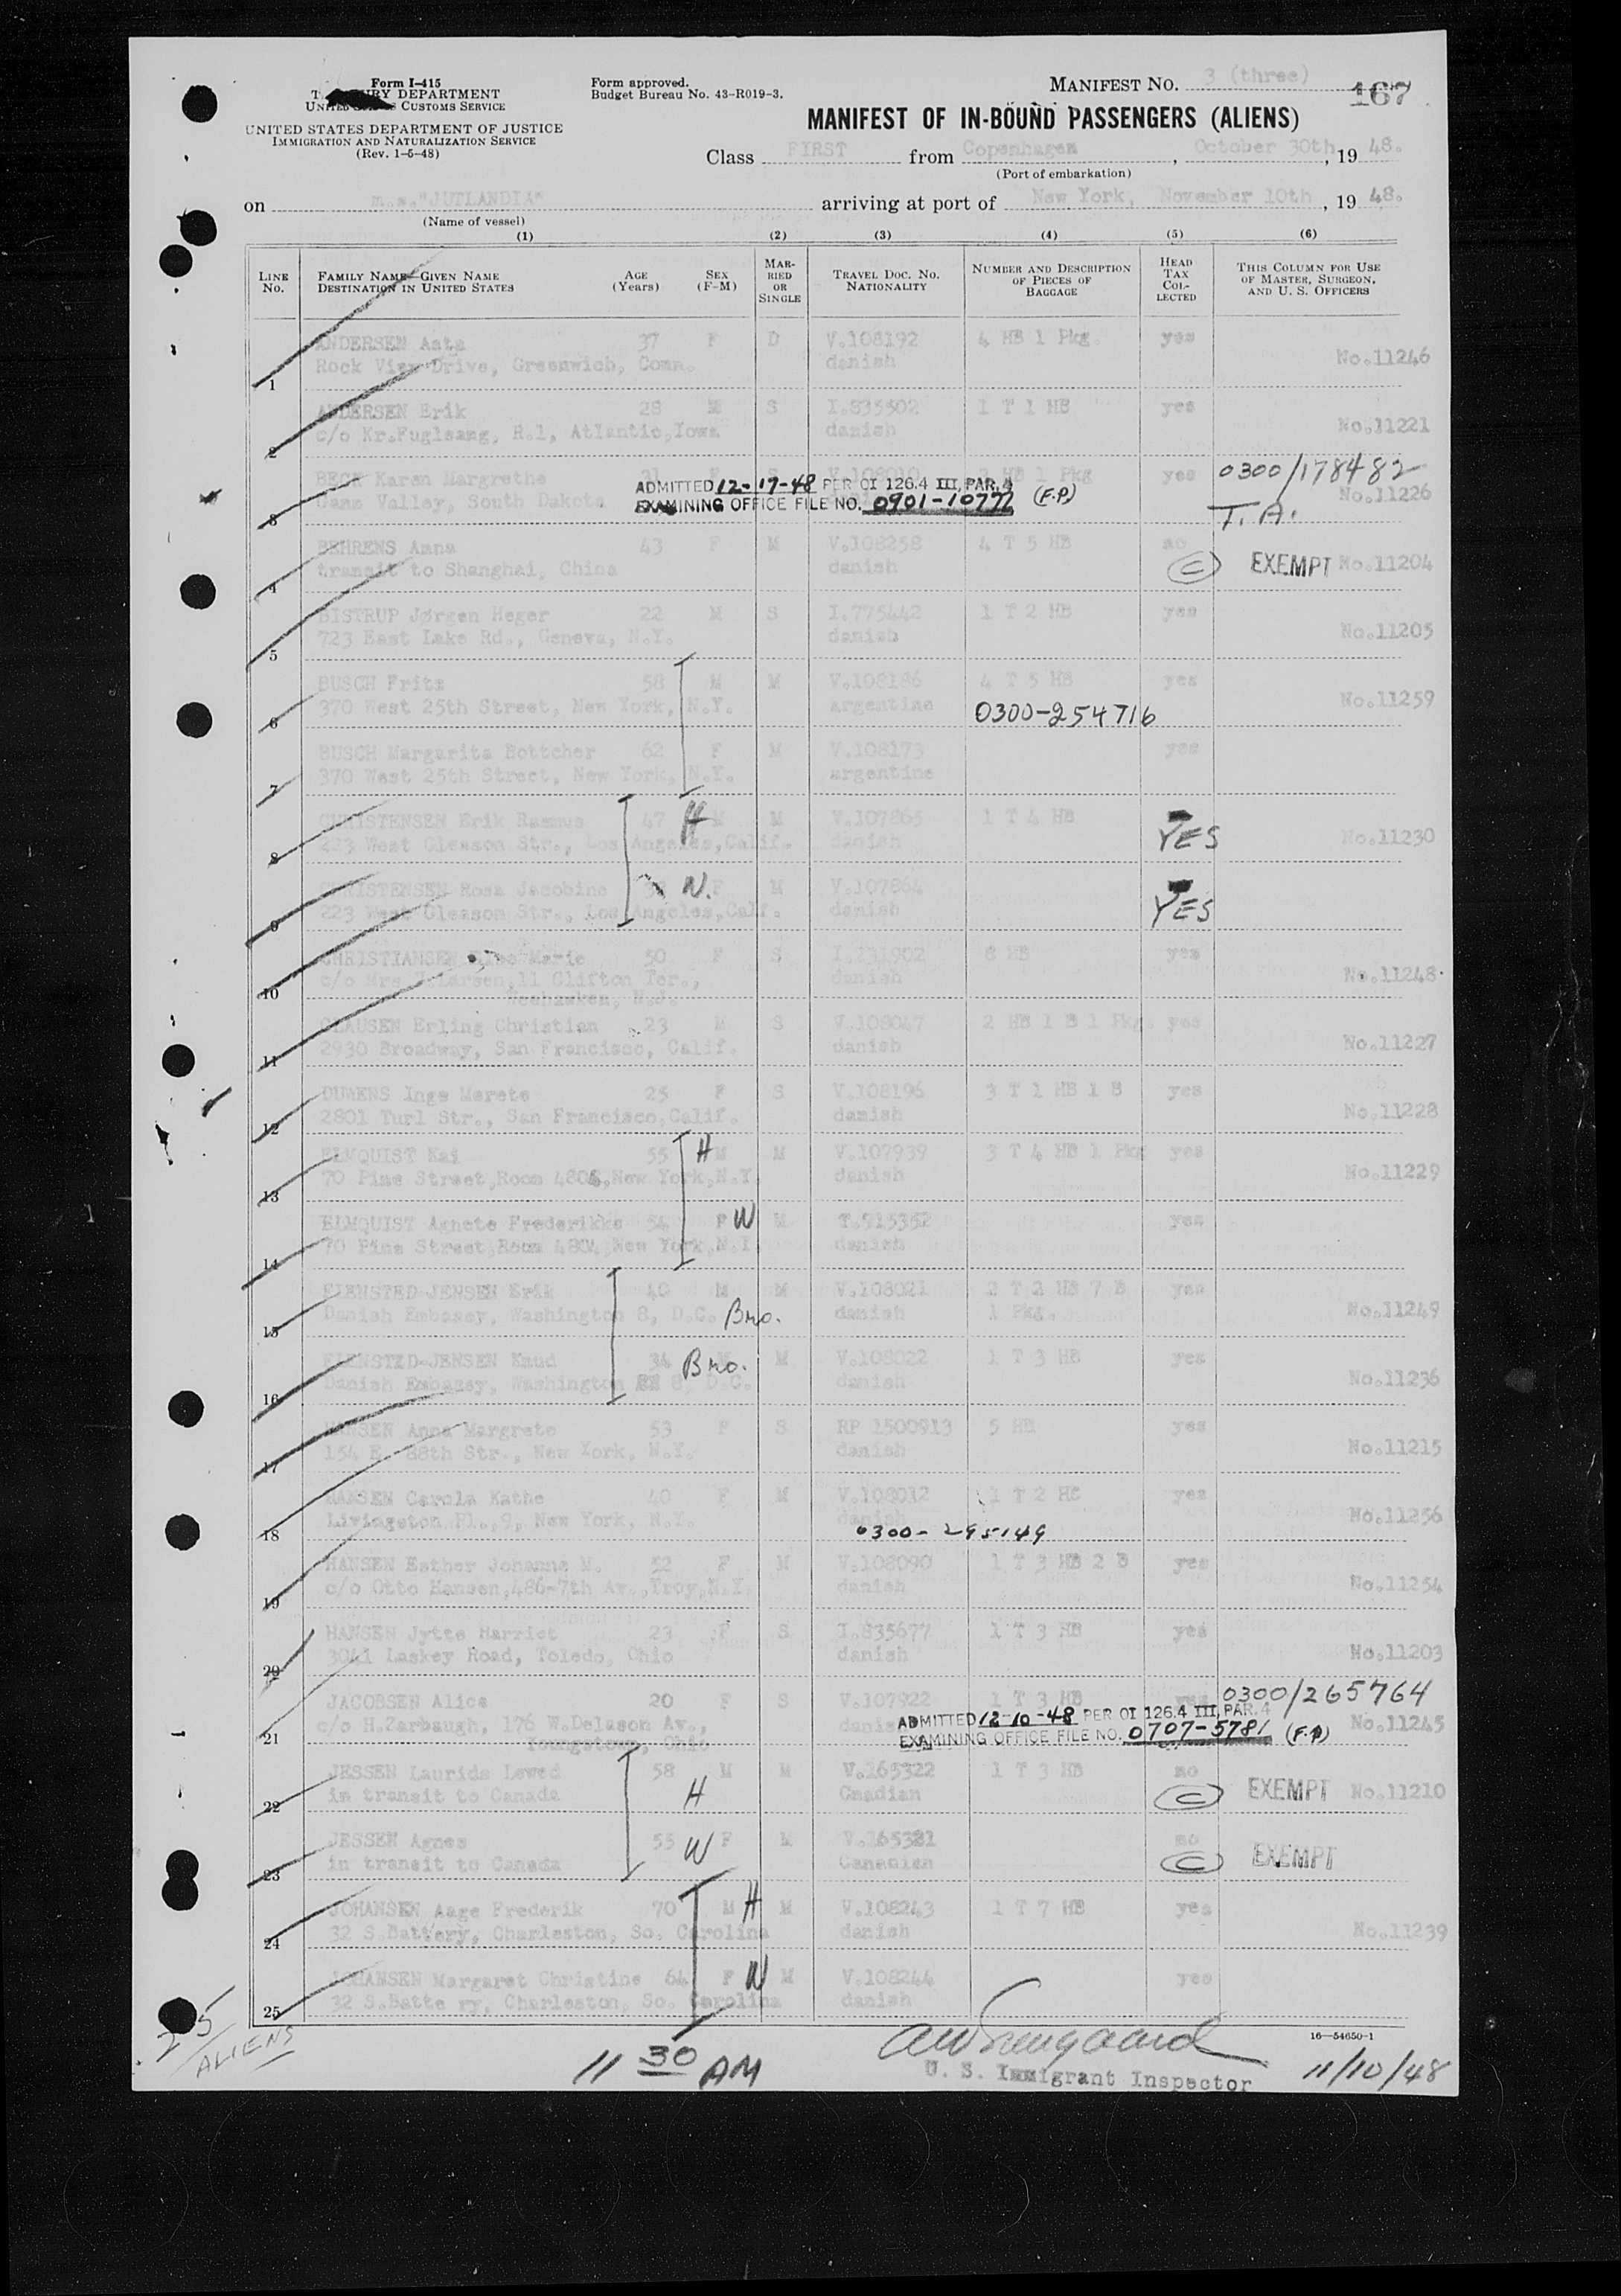 Form I-415
TREASURY DEPARTMENT
UNITED STATES CUSTOMS SERVICE
UNITED STATES DEPARTMENT OF JUSTICE
IMMIGRATION AND NATURALIZATION SERVICE
(Rev. 1-5-48)
Form approved.
Budget Bureau No. 43-R019-3.
MANIFEST NO. 3 (three)
167
MANIFEST OF IN-BOUND PASSENGERS (ALIENS)
Class FIRST from Copenhagen, October 30th, 19 48.
(Port of embarkation)
on m.s."JUTLANDIA" arriving at port of New York, November 10th, 19 48.
(Name of vessel)
(1) (2) (3) (4) (5) (6)
LINE NO. FAMILY NAME—GIVEN NAME DESTINATION IN UNITED STATES AGE (Years) SEX (F-M) MARRIED OR SINGLE TRAVEL DOC. NO. NATIONALITY NUMBER AND DESCRIPTION OF PIECES OF BAGGAGE HEAD TAX COLLECTED THIS COLUMN FOR USE OF MASTER, SURGEON, AND U. S. OFFICERS
ANDERSEN 37 F D V.108192 4 HB 1 Pkg. yes
1 Rock View Drive, Greenwich, Conn. danish No.11246
ANDERSEN Erik 28 M S I.835502 1 T 1 HB yes
2 c/o Kr.Fuglsang, R.1, Atlantic,Iowa danish No.11221
BECK Karen Margrethe 1 Pkg yes 0300/178482
3 Valley, South Dakota No.11226
ADMITTED 12-17-48 PER OI 126.4 III, PAR. 4
EXAMINING OFFICE FILE NO. 0901-10772 (F.P.)
T.A.
BEHRENS Anna 43 F M V.108258 4 T 5 HB no
4 transit to Shanghai, China danish C EXEMPT No.11204
BISTRUP Jørgen Heger 22 M S I.775442 1 T 2 HB yes
5 723 East Lake Rd., Geneva, N.Y. danish No.11205
BUSCH Fritz 58 M M V.108186 4 T 5 HB yes
6 370 West 25th Street, New York, N.Y. argentine 0300-254716 No.11259
BUSCH Margarita Bottcher 62 F M V.108173 yes
7 370 West 25th Street, New York, N.Y. argentine
CHRISTENSEN Erik Rasmus 47 H M M V.107865 1 T 4 HB
8 223 West Gleason Str., Los Angeles,Calif. danish YES No.11230
CHRISTENSEN Rosa Jacobine W. F M V.107864
9 223 West Gleason Str., Los Angeles,Calif. danish YES
CHRISTIANSEN Marie 50 F S I.231902 8 HB yes
10 c/o Larsen,11 Clifton Ter., danish No.11248
Weehawken, N.J.
CLAUSEN Erling Christian 23 M S V.108047 2 HB 1 B 1 Pkg yes
11 2930 Broadway, San Francisco, Calif. danish No.11227
DUWENS Inge Merete 25 F S V.108196 3 T 1 HB 1 B yes
12 2801 Turl Str., San Francisco,Calif. danish No.11228
ELMQUIST Kai 55 H M M V.107939 3 T 4 HB 1 Pkg yes
13 70 Pine Street,Room 4804,New York,N.Y. danish No.11229
ELMQUIST Agnete Frederikke 54 F W M T.915352 yes
14 70 Pine Street,Room 4804,New York,N.Y. danish
EJENSTED-JENSEN Erik 40 M M V.108021 2 T 2 HB 7 B yes
15 Danish Embassy, Washington 8, D.C. Bro. danish 1 Pkg. No.11249
EJENSTED-JENSEN Knud 34 Bro. M V.108022 1 T 3 HB yes
16 Danish Embassy, Washington 8, D.C. danish No.11236
HANSEN Anna Margrete 53 F S RP 1500913 5 HB yes
17 154 E. 88th Str., New York, N.Y. danish No.11215
HANSEN Carola Kathe 40 F M V.108012 1 T 2 HB yes
18 Livingston Pl.,9, New York, N.Y. danish 0300-295149 No.11256
HANSEN Esther Johanne M. 52 F M V.108090 1 T 3 HB 2 B yes
19 c/o Otto Hansen,486-7th Av.,Troy,N.Y. danish No.11254
HANSEN Jytte Harriet 23 F S I.835677 1 T 3 HB yes
20 3041 Laskey Road, Toledo, Ohio danish No.11203
JACOBSEN Alice 20 F S V.107922 1 T 3 HB yes 0300/265764
21 c/o H.Zarbaugh, 176 W.Delason Av., danish No.11245
Youngstown, Ohio
ADMITTED 12-10-48 PER OI 126.4 III, PAR. 4
EXAMINING OFFICE FILE NO. 0707-5781 (F.P.)
JESSEN Laurids Lewed 58 M M V.165322 1 T 3 HB no
22 in transit to Canada H Cnadian C EXEMPT No.11210
JESSEN Agnes 55 W F M V.165321 no
23 in transit to Canada Canadian C EXEMPT
JOHANSEN Aage Frederik 70 M H M V.108243 1 T 7 HB yes
24 32 S.Battery, Charleston, So. Carolina danish No.11239
JOHANSEN Margaret Christine 64 F W M V.108244 yes
25 32 S.Batte ry, Charleston, So. Carolina danish
25
ALIENS
16—54650-1
11 30 AM
U. S. Immigrant Inspector
11/10/48